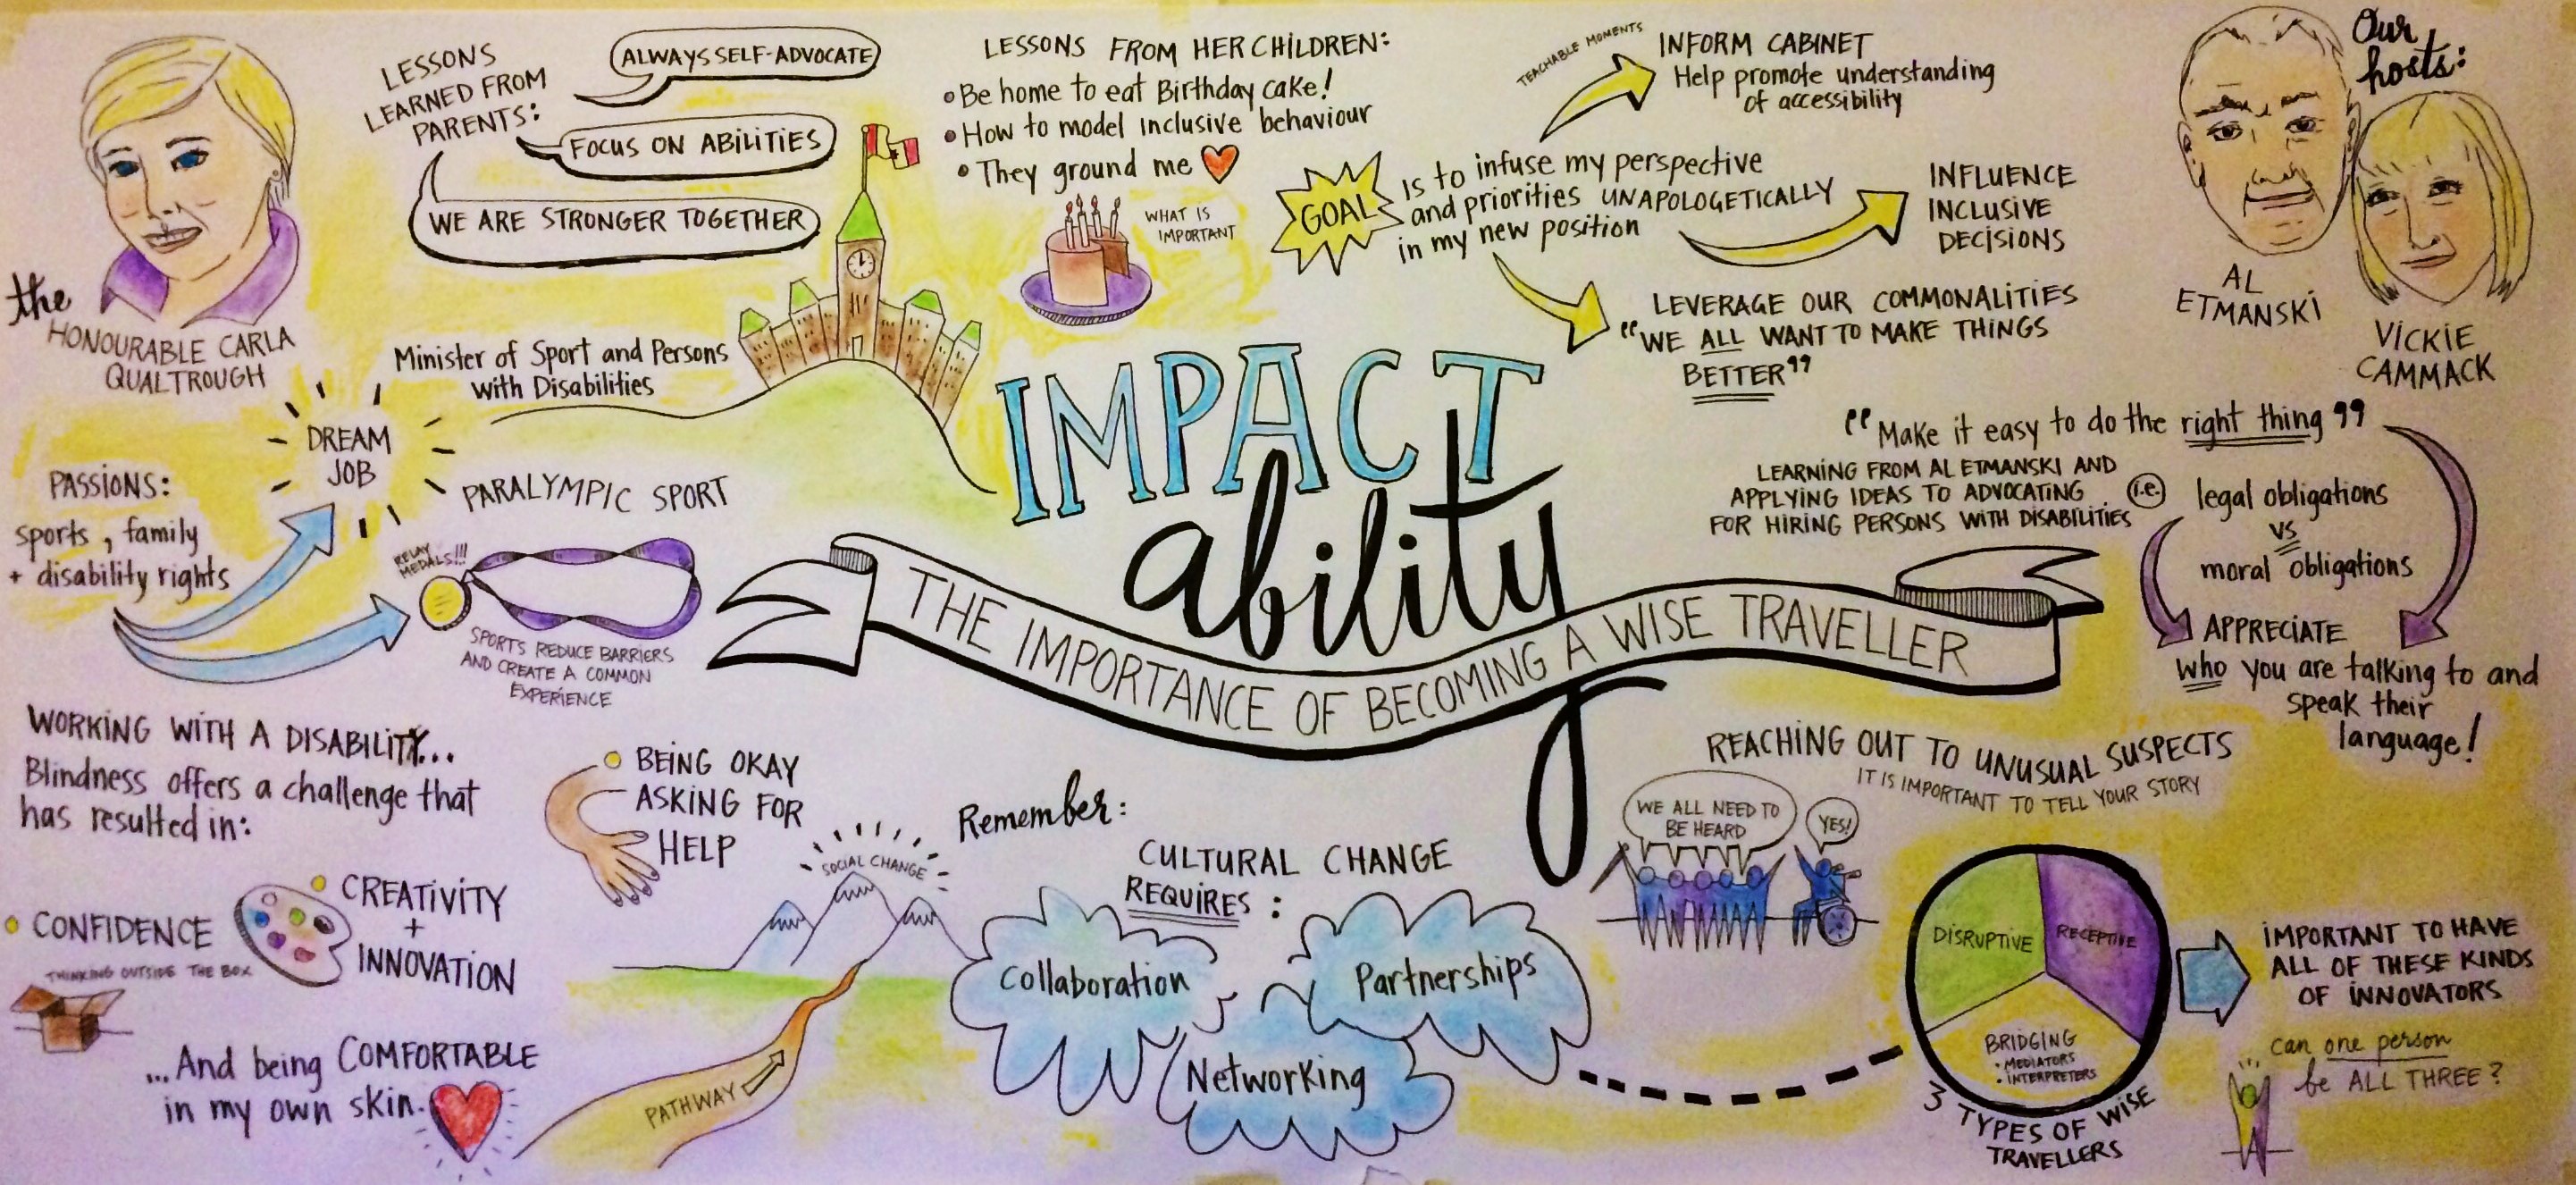 the
HONOURABLE CARLA
QUALTROUGH
LESSONS
LEARNED FROM
PARENTS:
ALWAYS SELF-ADVOCATE
FOCUS ON ABILITIES
WE ARE STRONGER TOGETHER
LESSONS FROM HER CHILDREN:
• Be home to eat Birthday cake!
• How to model inclusive behaviour
• They ground me
WHAT IS
IMPORTANT
TEACHABLE MOMENTS
INFORM CABINET
Help promote understanding
of accessibility
GOAL
is to infuse my perspective
and priorities UNAPOLOGETICALLY
in my new position
INFLUENCE
INCLUSIVE
DECISIONS
LEVERAGE OUR COMMONALITIES
"WE ALL WANT TO MAKE THINGS
BETTER"
Our
hosts:
AL
ETMANSKI
VICKIE
CAMMACK
Minister of Sport and Persons
with Disabilities
DREAM
JOB
PASSIONS:
sports, family
+ disability rights
PARALYMPIC SPORT
RELAY
MEDALS!!!
SPORTS REDUCE BARRIERS
AND CREATE A COMMON
EXPERIENCE
IMPACT
ability
THE IMPORTANCE OF BECOMING A WISE TRAVELLER
"Make it easy to do the right thing"
LEARNING FROM AL ETMANSKI AND
APPLYING IDEAS TO ADVOCATING
FOR HIRING PERSONS WITH DISABILITIES
i.e.
legal obligations
vs
moral obligations
APPRECIATE
who you are talking to and
speak their
language!
WORKING WITH A DISABILITY...
Blindness offers a challenge that
has resulted in:
BEING OKAY
ASKING FOR
HELP
CREATIVITY
+
INNOVATION
CONFIDENCE
THINKING OUTSIDE THE BOX
...And being COMFORTABLE
in my own skin.
SOCIAL CHANGE
PATHWAY
Remember:
CULTURAL CHANGE
REQUIRES:
Collaboration
Partnerships
Networking
REACHING OUT TO UNUSUAL SUSPECTS
IT IS IMPORTANT TO TELL YOUR STORY
WE ALL NEED TO
BE HEARD
YES!
DISRUPTIVE
RECEPTIVE
BRIDGING
• MEDIATORS
• INTERPRETERS
3 TYPES OF WISE
TRAVELLERS
IMPORTANT TO HAVE
ALL OF THESE KINDS
OF INNOVATORS
can one person
be ALL THREE?